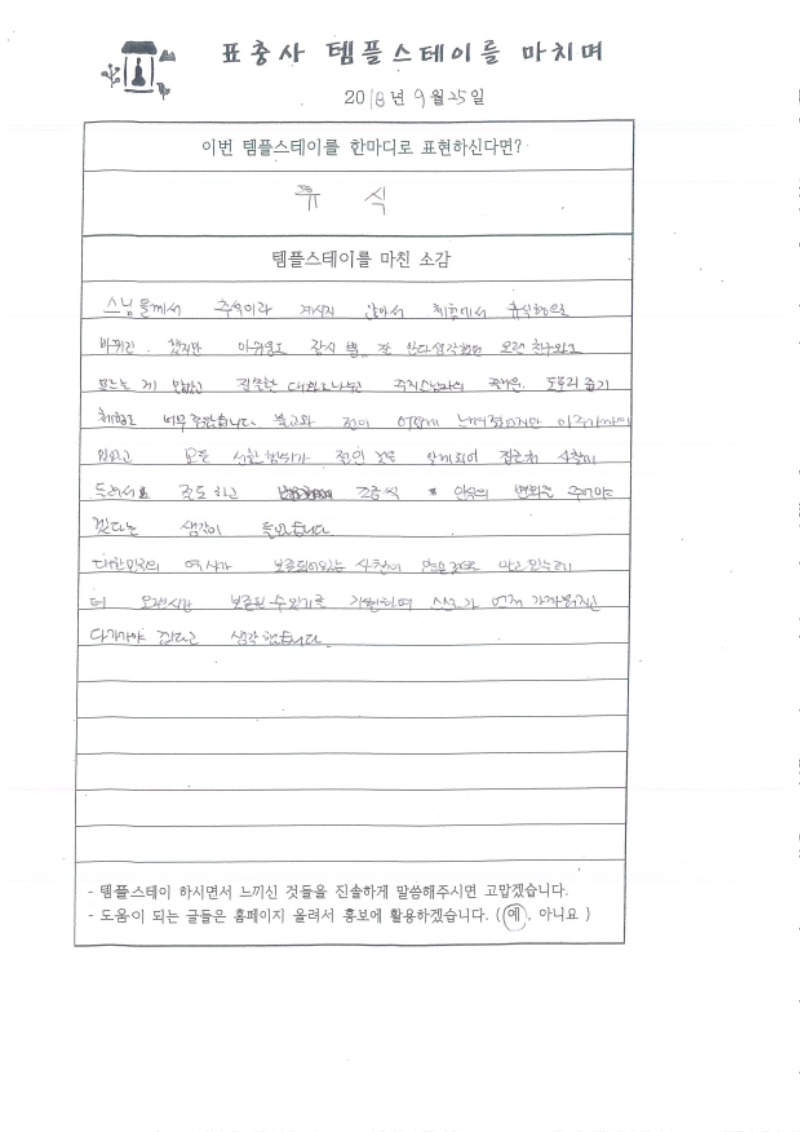 표충사 템플스테이를 마치며
2018년 9월 25일
이번 템플스테이를 한마디로 표현하신다면?
휴 식
템플스테이를 마친 소감
스님들께서 추석이라 계시지 않아서 체험에서 휴식형으로
바뀌긴 했지만 아쉬움도 잠시 뿐 잘 안다 생각했던 오랜 친구와도
모르는 게 많았고 진솔한 대화도 나누고 주지스님과의 도토리 줍기
체험도 너무 좋았습니다. 불교와 절이 어렵게 느껴졌지만 아주 가까이
있었고 모든 절인 것을 알게되어 사찰에
들러서 조금씩 인식의 변화를 주어야
겠다는 생각이 들었습니다
대한민국의 역사가 보존되어있는 사찰이 많은
더 오랜시간 보존될 수 있기를 스스로가 먼저
다가가야 겠다고 생각했습니다.
- 템플스테이 하시면서 느끼신 것들을 진솔하게 말씀해주시면 고맙겠습니다.
- 도움이 되는 글들은 홈페이지 올려서 홍보에 활용하겠습니다. (예, 아니요 )